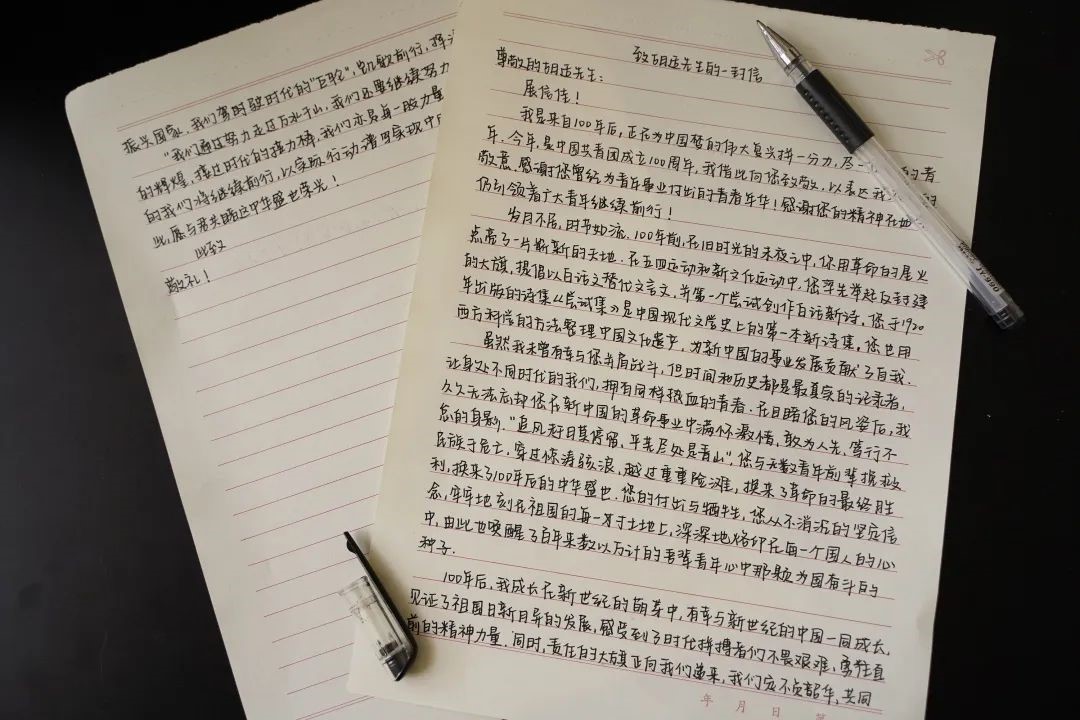 致胡适先生的一封信
尊敬的胡适先生:
展信佳!
我是来自100年后,正在为中国梦的伟大复兴拼一分力,尽一 的青
年.今年,是中国共青团成立100周年,我借此向您致敬,以表达我 的
敬意.感谢您曾经为青年事业付出的青春年华!感谢您的精神在此
仍引领着广大青年继续前行!
岁月不居,时节如流.100年前,在旧时光的未夜之中,你用革命的星火
点亮了一片崭新的天地.在五四运动和新文化运动中,您率先举起反封建
的大旗,提倡以白话文替代文言文,并第一个尝试创作白话新诗.您于1920
年出版的诗集《尝试集》是中国现代文学史上的第一本新诗集.您也用
西方科学的方法整理中国文化遗产,为新中国的事业发展贡献了自我.
虽然我未曾有幸与您并肩战斗,但时间和历史都是最真实的记录者,
让身处不同时代的我们,拥有同样热血的青春.在目睹您的风姿后,我
久久无法忘却您在新中国的革命事业中满怀激情,敢为人先,笃行不
怠的身影."追风赶月莫停留,平芜尽处是青山",您与无数青年前辈挽救
民族于危亡,穿过惊涛骇浪,越过重重险滩,换来了革命的最终胜
利,换来了100年后的中华盛世.您的付出与牺牲,您从不消泯的坚定信
念,牢牢地刻在祖国的每一寸土地上,深深地烙印在每一个国人的心
中,由此也唤醒了百年来数以万计的吾辈青年心中那颗为国奋斗的
种子.
100年后,我成长在新世纪的萌芽中,有幸与新世纪的中国一同成长,
见证了祖国日新月异的发展,感受到了时代拼搏者们不畏艰难、勇往直
前的精神力量.同时,责任的大旗正向我们递来,我们定不负韶华,共同
年 月 日 第
振兴国家.我们驾时驶时代的"巨轮",凯歌前行,挥
"我们通过努力走过万水千山,我们还要继续努力
的辉煌,接过时代的接力棒,我们亦是每一股力量
的我们将继续前行,以实际行动谱写实现中
此,愿与君共睹这中华盛世荣光!
此致
敬礼!